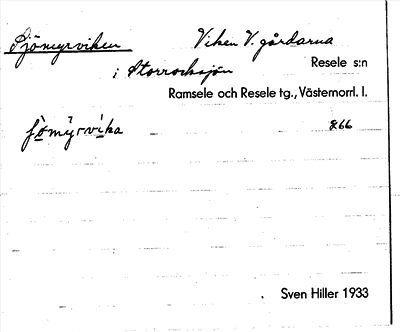 Sjömyrviken Viken V. gårdarna
i Storrocksjön Resele s:n
Ramsele och Resele tg., Västernorrl. l.
ʃömyrvika 266
Sven Hiller 1933